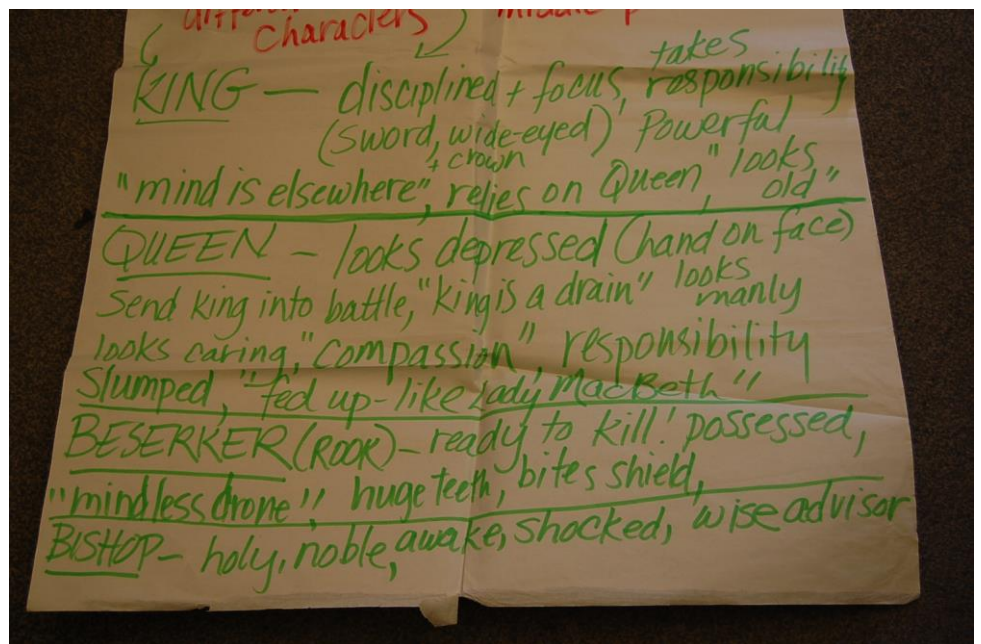 characters
KING — disciplined + focus, takes responsibility
(sword, wide-eyed) Powerful
+ crown
"mind is elsewhere", relies on Queen, "looks old"
QUEEN – looks depressed (hand on face)
Send king into battle, "king is a drain" looks manly
looks caring, "compassion", responsibility
Slumped, "fed up-like Lady MacBeth"
BESERKER (ROOK) – ready to kill! possessed,
"mindless drone", huge teeth, bites shield,
BISHOP – holy, noble, awake, shocked, wise advisor